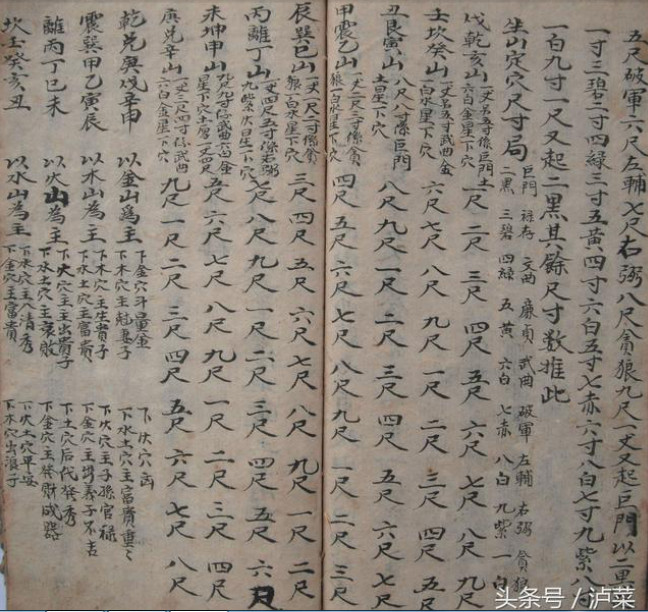 五尺破軍六尺左輔七尺右弼八尺貪狼九尺一丈又起巨門以二黑
一寸三碧二寸四綠三寸五黃四寸六白五寸七赤六寸八白七寸九紫八寸
一白九寸一尺又起二黑其餘尺寸数推此
坐山定穴尺寸局
巨門 祿存 文曲 廉貞 武曲 破軍 左輔 右弼 貪狼
二黑 三碧 四綠 五黃 六白 七赤 八白 九紫 一白
戌乾亥山 六白金星下穴 一尺 二尺 三尺 四尺 五尺 六尺 七尺 八尺 九尺
壬坎癸山 一白水星下穴 六尺 七尺 八尺 九尺 一尺 二尺 三尺 四尺 五尺
丑艮寅山 八尺八寸係巨門土星下穴 八尺 九尺 一尺 二尺 三尺 四尺 五尺 六尺 七尺
甲震乙山 一丈二尺三寸係貪狼一白水星下穴 四尺 五尺 六尺 七尺 八尺 九尺 一尺 二尺 三尺
辰巽巳山 一丈二尺二寸係貪狼一白水星下穴 三尺 四尺 五尺 六尺 七尺 八尺 九尺 一尺 二尺
丙離丁山 一丈四尺五寸係右弼九紫火星下穴 七尺 八尺 九尺 一尺 二尺 三尺 四尺 五尺 六尺
未坤申山 五尺 六尺 七尺 八尺 九尺 一尺 二尺 三尺 四尺
庚兌辛山 一丈三尺四寸係武曲六白金星下穴 九尺 一尺 二尺 三尺 四尺 五尺 六尺 七尺 八尺
乾兌庚戌辛申 以金山為主 下金穴斗量金 下木穴主尅妻子 下火穴凶 下水土穴主富貴
震巽甲乙寅辰 以木山為主 下木穴主生貴子 下水土穴主富貴 下火穴主子孫官祿 下金穴主義子不吉
離丙丁巳未 以火山為主 下火穴主出貴子 下水土穴主衰敗 下土穴后代發秀 下金穴主發財
坎壬癸亥丑 以水山為主 下水穴主人清秀 下金穴主富貴 下火土穴
头条号／泸菜